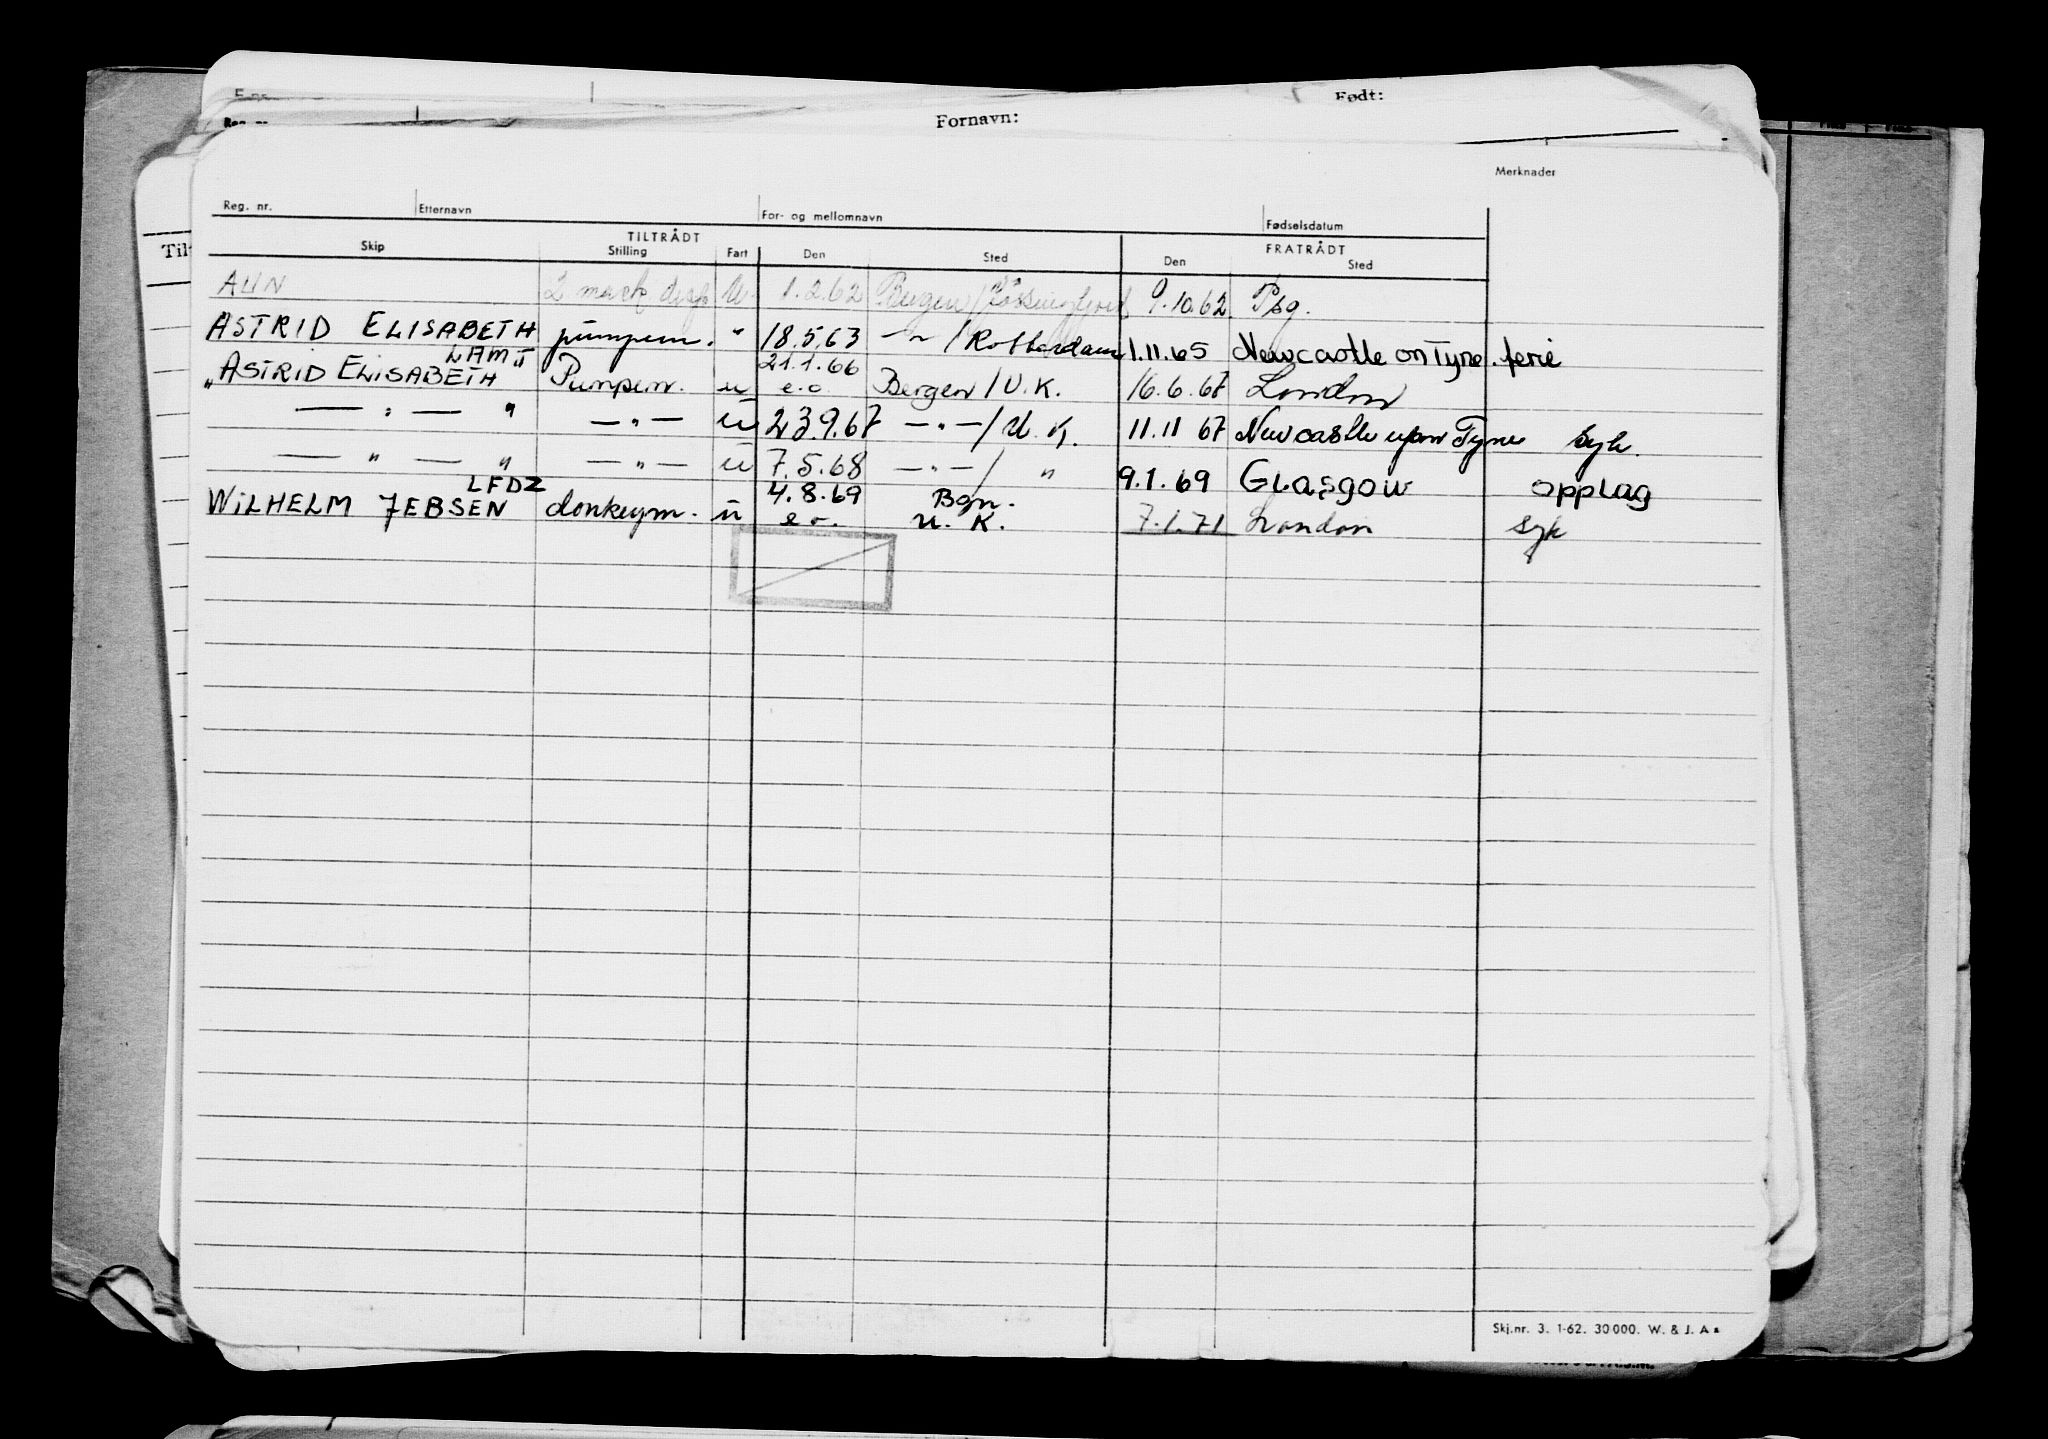 Født:
Fornavn:
Merknader
Reg. nr. Etternavn For- og mellomnavn Fødselsdatum
TILTRÅDT FRATRÅDT
Skip Stilling Fart Den Sted Den Sted
AUN 2 mask U. 1.2.62 Bergen / 9.10.62. Psg.
ASTRID ELISABETH pumpem. " 18.5.63 — " — / Rotterdam 1.11.65 Newcastle on Tyne. ferie
LAMJ 21.1.66
"ASTRID ELISABETH" Pumpem. u e.o. Bergen / U.K. 16.6.67 London
— " — " — " — u 23.9.67 — " — / U.K. 11.11 67 Newcastle upon Tyne syk.
— " — " — " — u 7.5.68 — " — / " 9.1.69 GLASGOW opplag
LFDZ 4.8.69 Bgn.
WILHELM JEBSEN donkeym. u e.o. U.K. 7.1.71 London syk
Skj.nr. 3. 1-62. 30 000. W. & J. A s